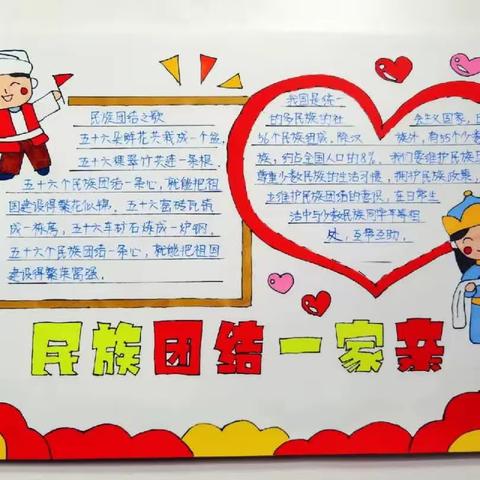 民族团结之歌
五十六朵鲜花共栽成一个盆,
五十六棵翠竹共进一条根.
五十六个民族团结一条心,就能把祖
国建设得繁花似锦. 五十六窑砖瓦铸
成一栋房, 五十六车矿石炼成一炉钢,
五十六个民族团结一条心,就能把祖国
建设得繁荣富强.
我国是统一
的多民族的社
会主义国家,
56个民族组成,除汉
族外,有55个少数
族,约占全国人口的8%,
我们要维护民族
尊重少数民族的生活习惯,
拥护民族政策,
主维护民族团结的意识,在日常生
活中与少数民族同学平等相
处,互帮互助.
民族团结一家亲